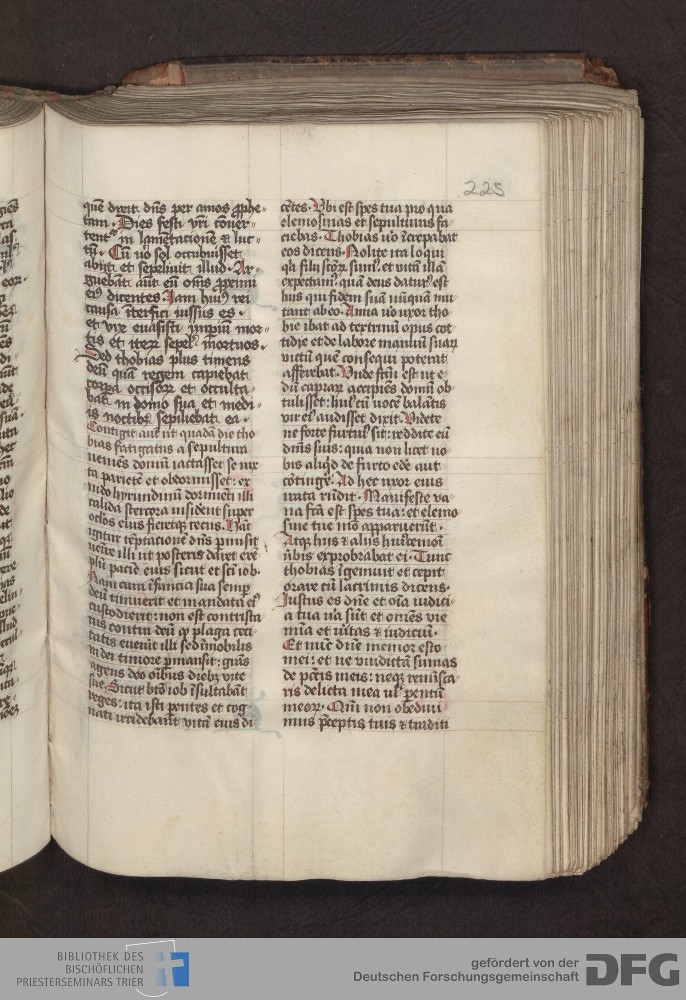 225
quē dixit dn̄s per amos ꝓphe-
tam. Dies festi vr̄i cōuer-
tent᷑ in lamētacionē & luc-
tū. Cū vo sol occubuisset
abijt et sepeliuit illud. Ar-
guebāt aūt eū om̄s ꝓximi
eiꝰ dicentes. Iam huiꝰ rei
causa īterfici iussus es.
et vix euasisti īmꝑiū mor-
tis et iteꝝ sepelꝰ mortuos.
Sed thobias plus timens
deū quā regem capiebat
corꝑa occisoꝝ et occulta-
bat in domo sua et medi-
is noctibꝫ sepiliebat ea.
Contigit aūt ut quadā die tho
bias fatigatus a sepultura
ueniēs domū iactasset se iux
ta parietē et obdormisset: ex
nido hyrundinū dormiēti illi
calida stercora insident super
oclos eius fieretqꝫ cecus. Hāc
igitur tēptacionē dn̄s ꝑmisit
uenīre illi ut posteris daret exē
plū paciē eius sicut et sc̄i iob.
Nam cum īfancia sua semꝑ
deū timuerit et mandata eiꝰ
custodierit: non est contrista
tus contra deū ꝙ plaga ceci
tatis euenit illi sed īmobilis
in dei timore ꝑmansit: grās
agens deo oībus diebꝫ vite
sue. Sicut btō iob īsultabāt
reges: ita isti pentes et cog-
nati irridebant vitā eius di
cētes. Vbi est spes tua pro qua
elemosinas et sepulturas fa
ciebas. Thobias uo īcrepabat
eos dicens. Nolite ita loqui
qa filij sc̄oꝝ sumꝰ. et vitā illā
expectamꝰ. quā deus daturꝰ est
hijs qui fidem suā nūquā mu
tant ab eo. Anna uo uxor tho-
bie ibat ad textrinū opus cot
tidie et de labore manuū suaꝝ
uictū quē consequi poterat
afferebat. Vnde fc̄m est ut e-
dū capraꝝ accipiēs domū ob
tulisset: huiꝰ cū uocē balātis
vir eiꝰ audisset dixit. Videte
ne forte furtiuꝰ sit: reddite eū
dn̄is suis: quia non licet no
bis aliqd de furto edē aut
cōtingē. Ad hec uxor eius
irata rn̄dit. Manifeste va-
na fc̄a est spes tua: et elemo-
sine tue mō apparuerūt.
Atqꝫ hijs & alijs huiꝰcemoi
ūbis exprobrabat ei. Tunc
thobias īgemuit et cepit
orare cū lacrimis dicens.
Iustus es dn̄e et oīa iudici-
a tua va sūt et omēs vie
mīa et uītas & iudiciū.
Et nūc dn̄e memor esto
mei: et ne vindictā sumas
de pctīs meis: neqꝫ remīsca-
ris delicta mea ulꝰ pentū
meoꝝ. Qm̄ non obediui
mus p̄ceptis tuis & traditi
BIBLIOTHEK DES
BISCHÖFLICHEN
PRIESTERSEMINARS TRIER
gefördert von der
Deutschen Forschungsgemeinschaft
DFG